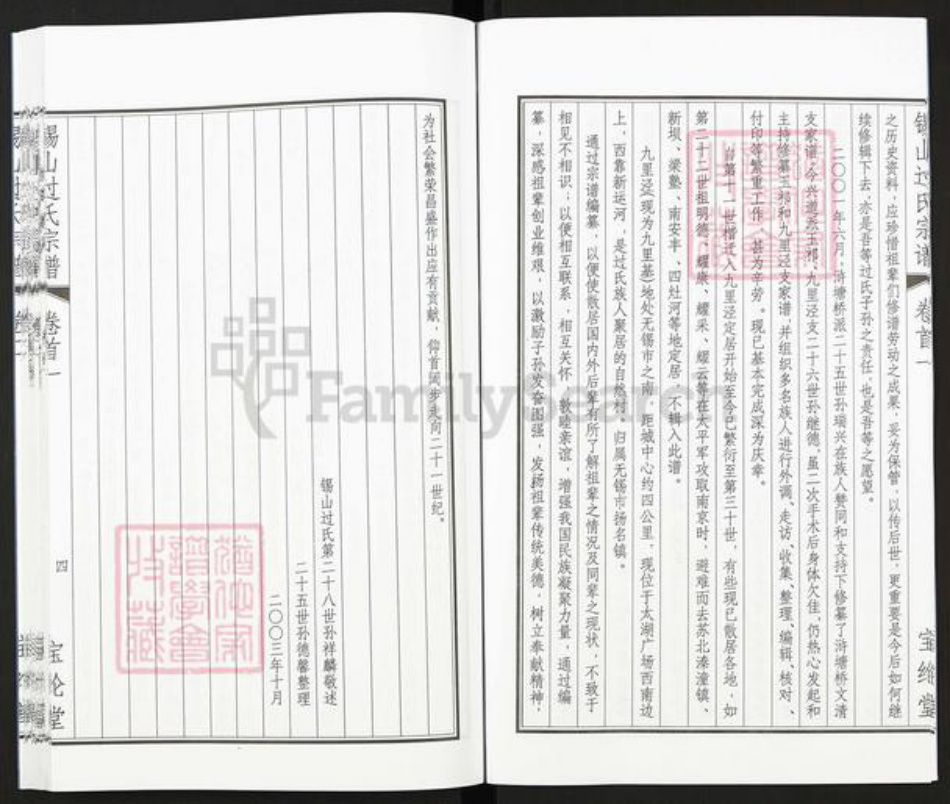 锡山过氏宗谱 卷首一 宝纶堂
之历史资料，应珍惜祖辈们修谱劳动之成果，妥为保管，以传后世，更重要是今后如何继
续修辑下去，亦是吾等过氏子孙之责任，也是吾等之愿望。
二〇〇一年六月，浒塘桥派二十五世孙瑞兴在族人赞同和支持下修纂了浒塘桥文清
支家谱，今兴道派玉祁、九里泾支二十六世孙继德，虽二次手术后身体欠佳，仍热心发起和
主持修纂玉祁和九里泾支家谱，并组织多名族人进行外调、走访、收集、整理、编辑、核对、
付印等繁重工作，甚为辛劳。现已基本完成深为庆幸。
第十一世楷迁入九里泾定居开始至今已繁衍至第三十世，有些现已散居各地，如
第二十二世祖明德、耀康、耀采、耀云等在太平军攻取南京时，避难而去苏北溱潼镇、
新坝、梁塾、南安丰、四灶河等地定居，不辑入此谱。
九里泾(现为九里基)地处无锡市之南，距城中心约四公里，现位于太湖广场西南边
上，西靠新运河，是过氏族人聚居的自然村。归属无锡市扬名镇。
通过宗谱编纂，以便使散居国内外后辈有所了解祖辈之情况及同辈之现状，不致于
相见不相识；以便相互联系，相互关怀，敦睦亲谊，增强我国民族凝聚力量，通过编
纂，深感祖辈创业维艰，以激励子孙发奋图强，发扬祖辈传统美德，树立奉献精神，
为社会繁荣昌盛作出应有贡献，仰首阔步走向二十一世纪。
锡山过氏第二十八世孙祥麟敬述
二十五世孙德馨整理
二〇〇三年十月
锡山过氏宗谱 卷首一 四 宝纶堂
FamilySearch